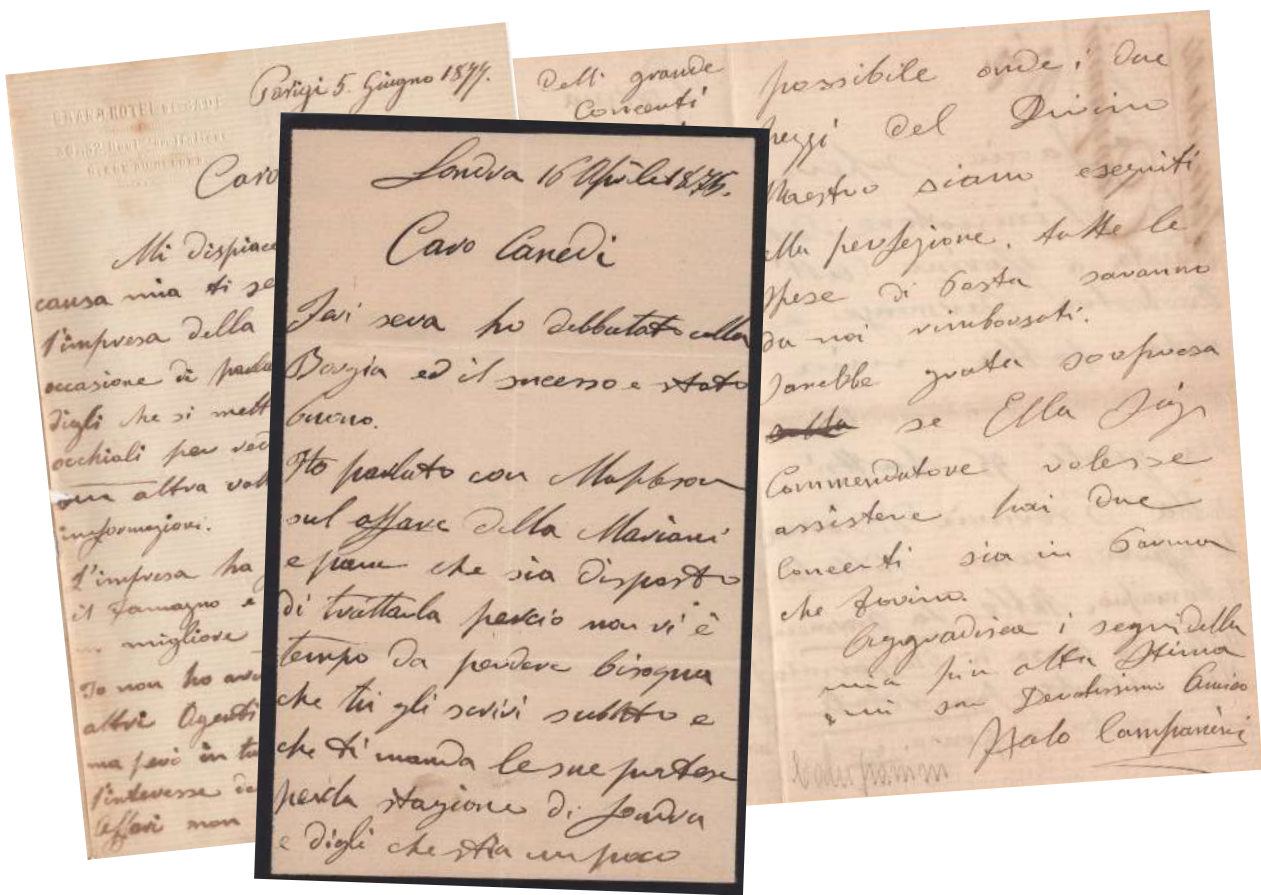 Parigi 5. Giugno 1877.
GRAND HOTEL
Caro
Mi dispiace
causa mia ti se
l'impresa della
occasione di parla
digli che si mett
occhiali per ved
altra volt
informazioni.
L'impresa ha
il Tamagno e
migliore
Io non ho avu
altri Agenti
ma però in tu
l'interesse de
Affari non
Londra 16 Aprile 1875.
Caro Canedi
Jeri sera ho debbutato colla
Borgia ed il sucesso e stato
buono.
Ho parlato con Mapleson
sul affare della Mariani
e pare che sia disposto
di trattarla percio non vi è
tempo da perdere bisogna
che tu gli scrivi subbito e
che ti manda le sue pretese
perla stagione di Londra
e digli che stia un poco
Delli grande
Concerti
possibile onde i due
pezzi del Divino
Maestro siano eseguiti
alla perfezione. tutte le
spese di Posta saranno
da noi rimborsati.
Sarebbe grata sorpresa
se Ella Sig
Commendatore volesse
assistere hai due
Concerti sia in Parma
che Torino.
Aggradisca i segni della
mia più alta Stima
son Devotissimo Amico
Italo Campanini